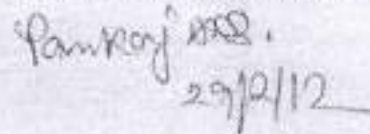 Pankaj
29/2/12